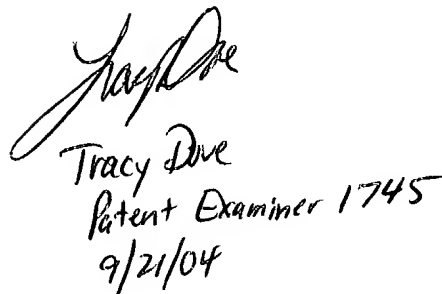 Tracy Dove
Tracy Dove
Patent Examiner 1745
9/21/04